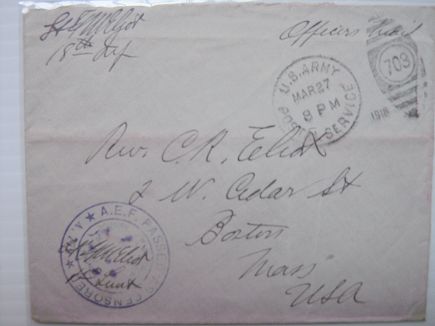 Lt E M Eliot
18th Inf
Officers Mail
U.S. ARMY
MAR 27
8 PM
POST SERVICE
703
1918
Rev. C. R. Eliot
2 W. Cedar St
Boston
Mass
USA
A.E.F. PASSED CENSORED
E M Eliot